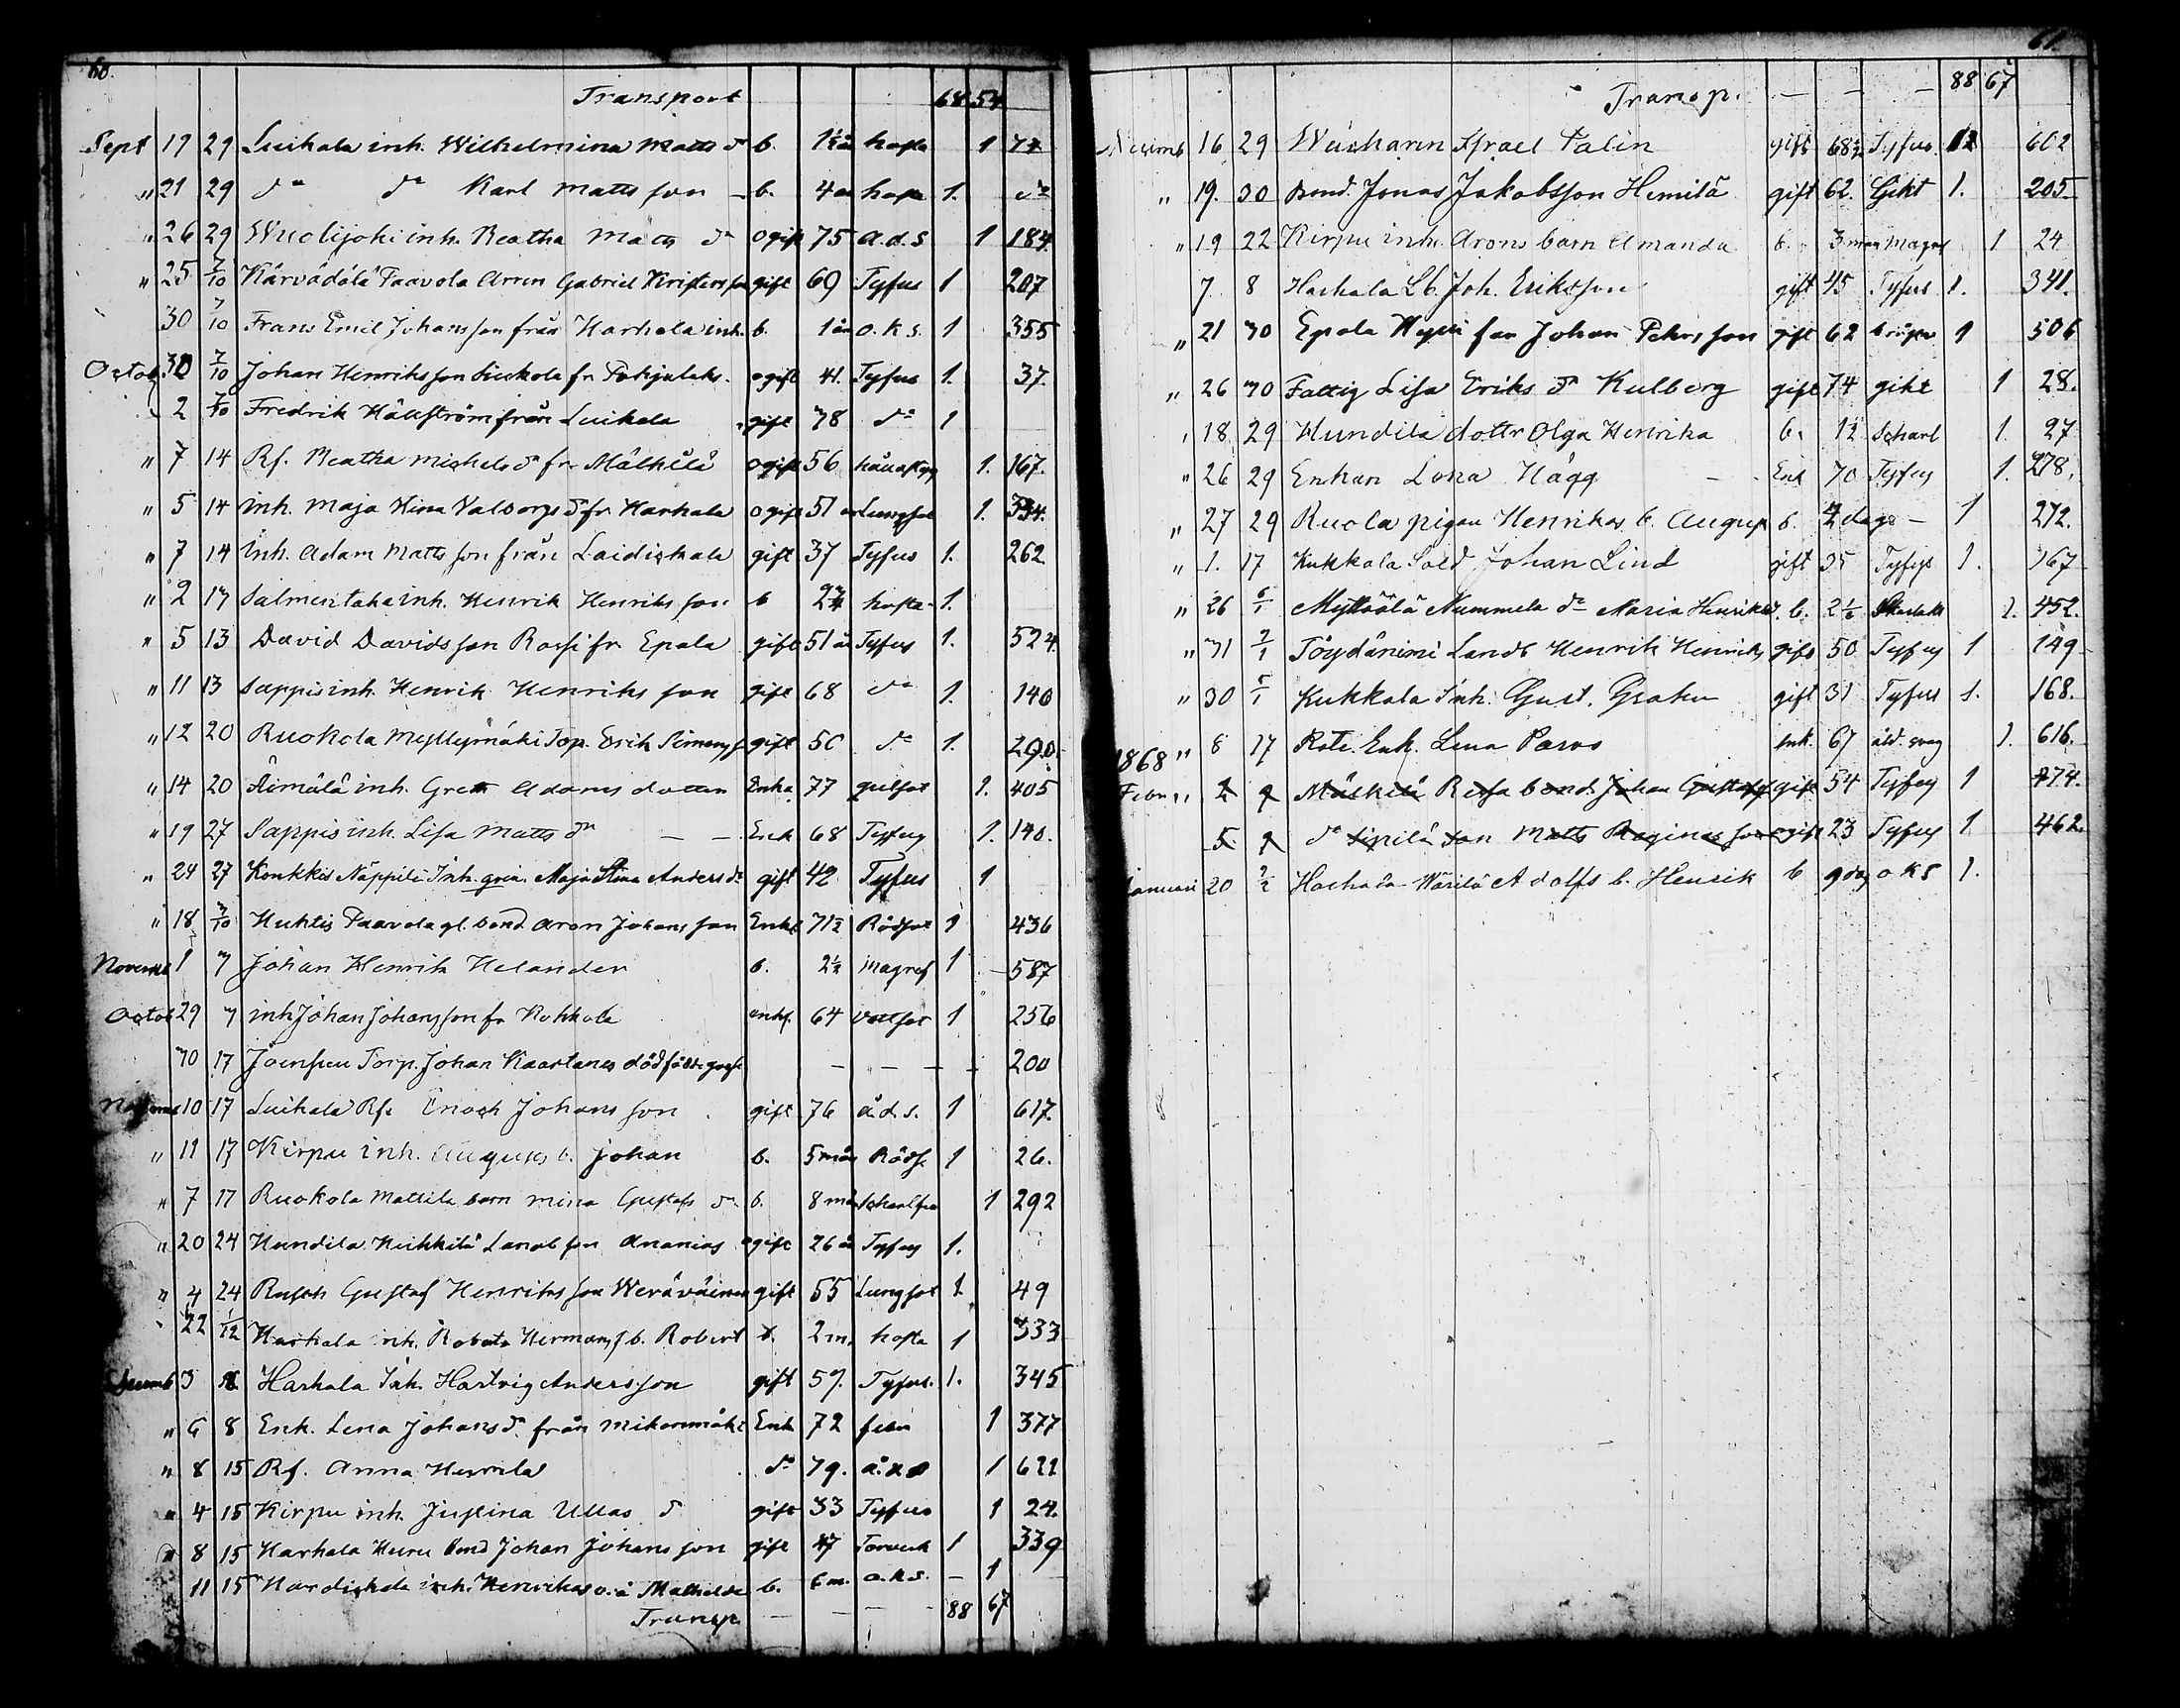 60.
Transport 68 54
Sept 19 29 Luikala inh. Wilhelmina Matts dr b. 1½ år hosta 1 74
" 21 29 do do Karl Matts son - b. 4 år hosta 1. do
" 26 29 Wuolijoki inh. Beatha Matts dr ogift 75 å.d.s 1 184.
" 25 7/10 Kärvädälä Paavola Arren Gabriel Kristersson gift 69 Tyfus 1 207
30 7/10 Frans Emil Johansson från Harhala inh. b. 1 år o.k.s. 1 355
Octob. 30 7/10 Johan Henriksson fr Pohjalaks. ogift 41. Tyfus 1. 37.
2 7/10 Fredrik Hällström från Luikala gift 78 do 1
" 7 14 Rf. Beatha Michelsdr fr Mälkilä ogift 56 1. 167.
" 5 14 inh. Maja Stina Valborgs dr fr Harhala ogift 51 år Lungsot 1. 334.
" 7 14 Inh. Adam Mattsson från Laidiskala gift 37 Tyfus 1. 262
" 2 17 Salmentaka inh. Henrik Henriksson b 2¾ hosta 1.
" 5 13 David Davidsson Rossi fr Epala gift 51 år Tyfus 1. 524.
" 11 13 Sappis inh. Henrik Henriksson gift 68 do 1. 140
" 12 20 Ruokola Myllymäki Torp. Erik Simonss gift 50 do 1. 290.
" 14 20 Äimälä inh. Greta Adams dotter Enka 77 gulsot 1. 405
" 19 27 Sappis inh. Lisa Matts dr — — Enk 68 Tyfus 1. 140.
" 24 27 Konkkis Näppilä Inh. Maja Stina Anders dr gift 42 Tyfus 1
" 18 7/10 Huhtis Paavola gl. bond Aron Johansson Enkl 71½ Rödsot 1 436
Novemb 1 7 Johan Henrik Helander b. 2½ Magref 1 587
Octob 29 7 inh Johan Johansson fr Kokkola enkl. 64 vattsot 1 256
30 17 Joensuu Torp. Johan Kaartanes dödfödde — — — — 200
Novemb 10 17 Luikala Rf. Enoch Johansson gift 76 å.d.s. 1 617.
" 11 17 Kirpu inh. Augusts b. Johan b. 5 mån Röds 1 26.
" 7 17 Ruokola Mattila barn Mina Gustafs dr b. 8 mån 1 292
" 20 24 Hundila Heikkilä Landb son Ananias ogift 26 år Tyfus 1.
" 4 24 Rusth Gustaf Henriksson gift 55 Lungsot 1. 49
22 1/12 Harhala inh. Roberts Hermanss b. Robert b. 2 m. hosta 1 333
Decemb 3 8 Harhala Inh. Hartvig Andersson gift 57. Tyfus. 1. 345
" 6 8 Enk. Lena Johansdr. från Mikonmäki Enk 72 feber 1 377
" 8 15 Rf. Anna Heinilä do 79. å.d.s 1 621
" 4 15 Kirpu inh. Justina Ullas d gift 33 Tyfus 1 24.
" 8 15 Harhala Huru Bond Johan Johansson gift 47 Torrverk 1 339
11 15 inh. Henrikas Mathilda b. 6 m. o.k.s. — 1
Transp — — — 88 67
61.
Transp. — — — 88 67
Decemb 16 29 Israel Palin gift 68½ Tyfus 602
" 19. 30 Bond. Jonas Jakobsson Hemilä gift 62. Gikt 1. 205.
" 19 22 Kirpu inh. Arons barn Amanda b. 3 mån Magref 1 24
7 8 Harhala Lb. Joh. Eriksson gift 45 Tyfus 1. 341.
" 21 30 Epala far Johan Petersson gift 62 1 506
" 26 30 Fattig Lisa Eriks dr Kulberg gift 74 gikt 1 28.
" 18 29 Hundila dottr Olga Henrika b. 1½ Scharl 1. 27
" 26 29 Enkan Lona Hägg — Enk 70 Tyfus 1. 278.
" 27 29 Ruola pigan Henrikas b. August b. 2 dagr — 1 272.
" 1. 17 Kukkola Sold Johan Lind gift 35 Tyfus 1. 167
" 26 5/1 Myttäälä Nummela dr Maria Henriksd. b. 2½ Skarlak 1. 452.
" 31 2/1 Töydänimi Landb Henrik Henriks gift 50 Tyfus 1 149
" 30 5/1 Kukkola Inh. Gust. Grahn gift 31 Tyfus 1. 168.
" 8 17 Rote. Enk. Lena Parvs Enk. 67 åld. svag 1. 616.
1868
Febr " 2 9 Mäskelä bond. Johan Gustafss gift 54 Tyfus 1 474.
5 9 do Sipilä son Matts Reginas son ogift 23 Tyfus 1 462.
Januari 20 2/2 Harhala Wärilä Adolfs b. Henrik b 9 dag o k s 1.